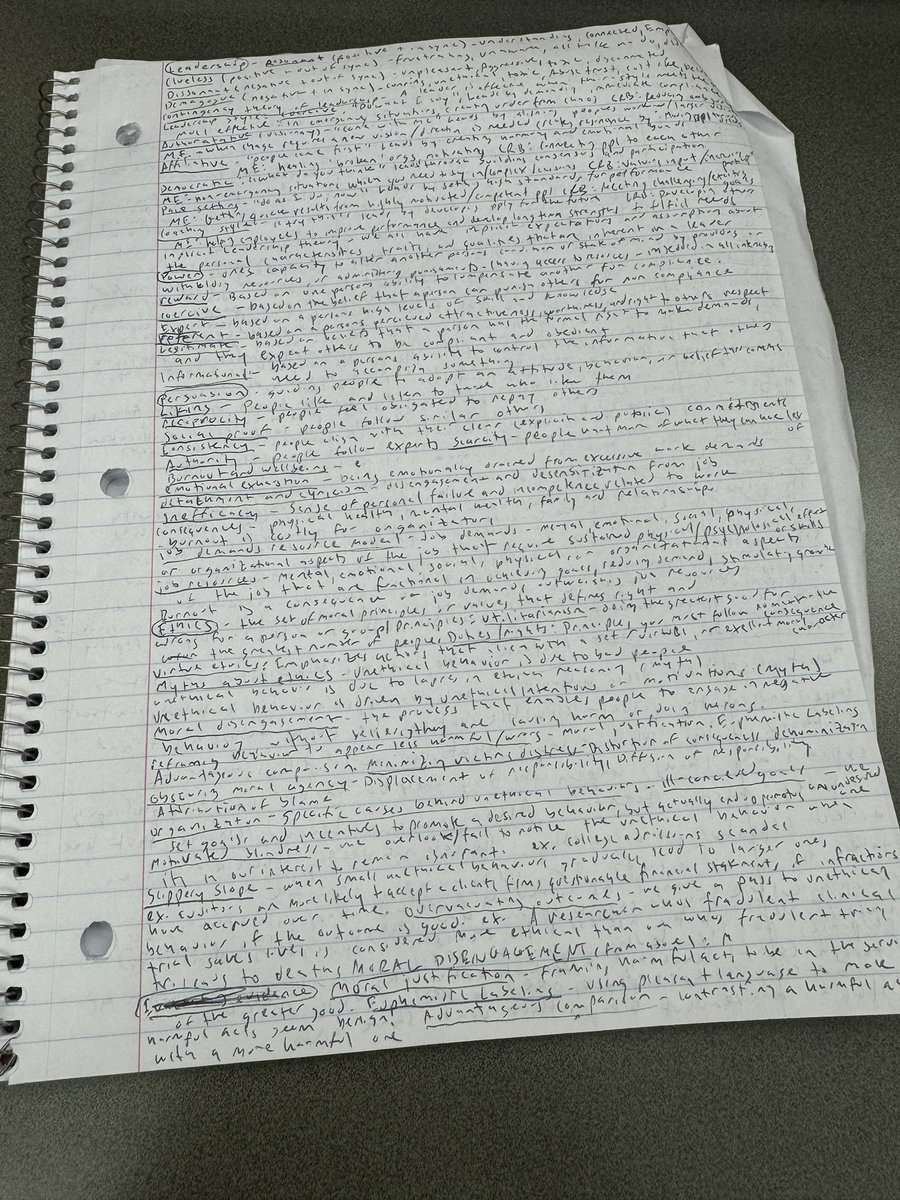 Leadership - Resonant (positive + in sync) - understanding, connected, Emp
Clueless (positive + out of sync) - frustrating, unaware, all talk no
Dissonant (negative + out of sync) - unpleasant, Aggressive, toxic,
Demagogue (negative + in sync) - toxic, Abuse trust,
contingency theory of leadership - leader is effective when style meets the
Leadership styles "Do what I say" Leads by demanding immediate compliance
Most effective - in emergency situations, (create order from chaos) CRB:
Authoratative (visionary) - "come with me" Leads by
ME - when change requires a new vision/direction is needed
Affiliative - "people come first" Leads by creating harmony and emotional bonds
ME: healing broken orgs, motivating CRB: connecting ppl to eachother
Democratic - "what do you think" leads through building consensus and participation
ME: non emergency situations when you need buy in/complex decisions CRB: valuing input/
Pace setting - "do as I do, now" leads by setting high standards for performance
ME: Getting quick results from highly motivated/competent ppl CRB: Meeting challenging/exciting goals
Coaching style - "try this" leads by developing ppl for the future CRB: Developing others
ME: helping employees to improve performance and develop long term strengths
implicit Leadership theory - we all have implicit expectations and/or assumption about
the personal characteristics, traits, and qualities that are inherent in a leader
Power - ones capacity to alter another persons condition or state of mind by providing or
witholding resources, or administering punishments (having access to resources - imbedded in all interacts
reward - Based on one persons ability to compensate another for compliance.
coercive - based on the belief that a person can punish others for non compliance
Expert - based on a persons high levels of skill and knowledge
Referent - based on a persons percieved attractiveness, worthiness, and right to others respect
Legitimate - based on beliefs that a person has the formal right to make demands,
and they expect others to be compliant and obediant
Informational - based on a persons ability to control the information that others
need to accomplish something
Persuasion - guiding people to adopt an attitude, behavior, or belief thru comms
Liking - People like and listen to those who like them
reciprocity - people feel obligated to repay others
Social proof - people follow similar others
Consistency - people align with their clear (explicit and public) commitments
Authority - people follow experts Scarcity - people want more of what they can have less of
Burnout and wellbeing -
emotional exhaustion - being emotionaly drained from excessive work demands
detatchment and cynicism - disengagement and desensitization from job
inefficacy - Sense of personal failure and incompetence related to work
consequences - physical health, mental health, family and relationship.
burnout is costly for organizations
job demands resource model - Job demands - mental, emotional, social, physical,
or organizational aspects of the job that require sustained physical/psychological effort or skills
job resources - Mental, emotional, social, physical, or organizational aspects
of the job that are functional in achieving goals, reducing demand, stimulating growth
Burnout is a consequence of job demands outweighing job resources
Ethics - the set of moral principles or values that defines right and
wrong for a person or group/principles: utilitarianism - doing the greatest good for
the greatest number of people, Duties/rights: Principles you must follow no matter the consequence
virtue ethics: Emphasizes actions that align with a set of virtues, or excellent moral character
Myths about ethics - unethical behavior is due to bad people
unethical behavior is due to lapses in ethical reasoning (myth)
unethical behavior is driven by unethical intentions or motivations (myth)
Moral disengagement - the process that enables people to engage in negative
behavior without believing they are causing harm or doing wrong.
reframing behavior to appear less harmful/wrong - moral justification, Euphemistic Labeling
Advantageous comparison, minimizing victims distress - Distortion of consequences, dehumanization
obscuring moral agency - Displacement of responsibility, Diffusion of responsibility
Attribution of blame
organization - specific causes behind unethical behaviors - Ill-concieved goals - we
set goals and incentives to promote a desired behavior, but actually end up promoting an undesired one
Motivated blindness - we overlook/fail to notice the unethical behavior when
its in our interest to remain ignorant. ex. college admissions scandal
Slippery slope - when small unethical behaviors gradually lead to larger ones
ex. auditors are more likely to accept a clients firms questionable financial statement, if infractions
have accrued over time. Overvaluing outcomes - we give a pass to unethical
behavior if the outcome is good. ex. A researcher whos fraudulent clinical
trial saves lives is considered more ethical than one whos fraudulent trial
leads to deaths MORAL DISENGAGEMENT
Moral justification - framing harmful acts to be in the service
of the greater good. Euphemistic Labeling - Using pleasant language to make
harmful acts seem benign. Advantageous comparison - contrasting a harmful act
with a more harmful one